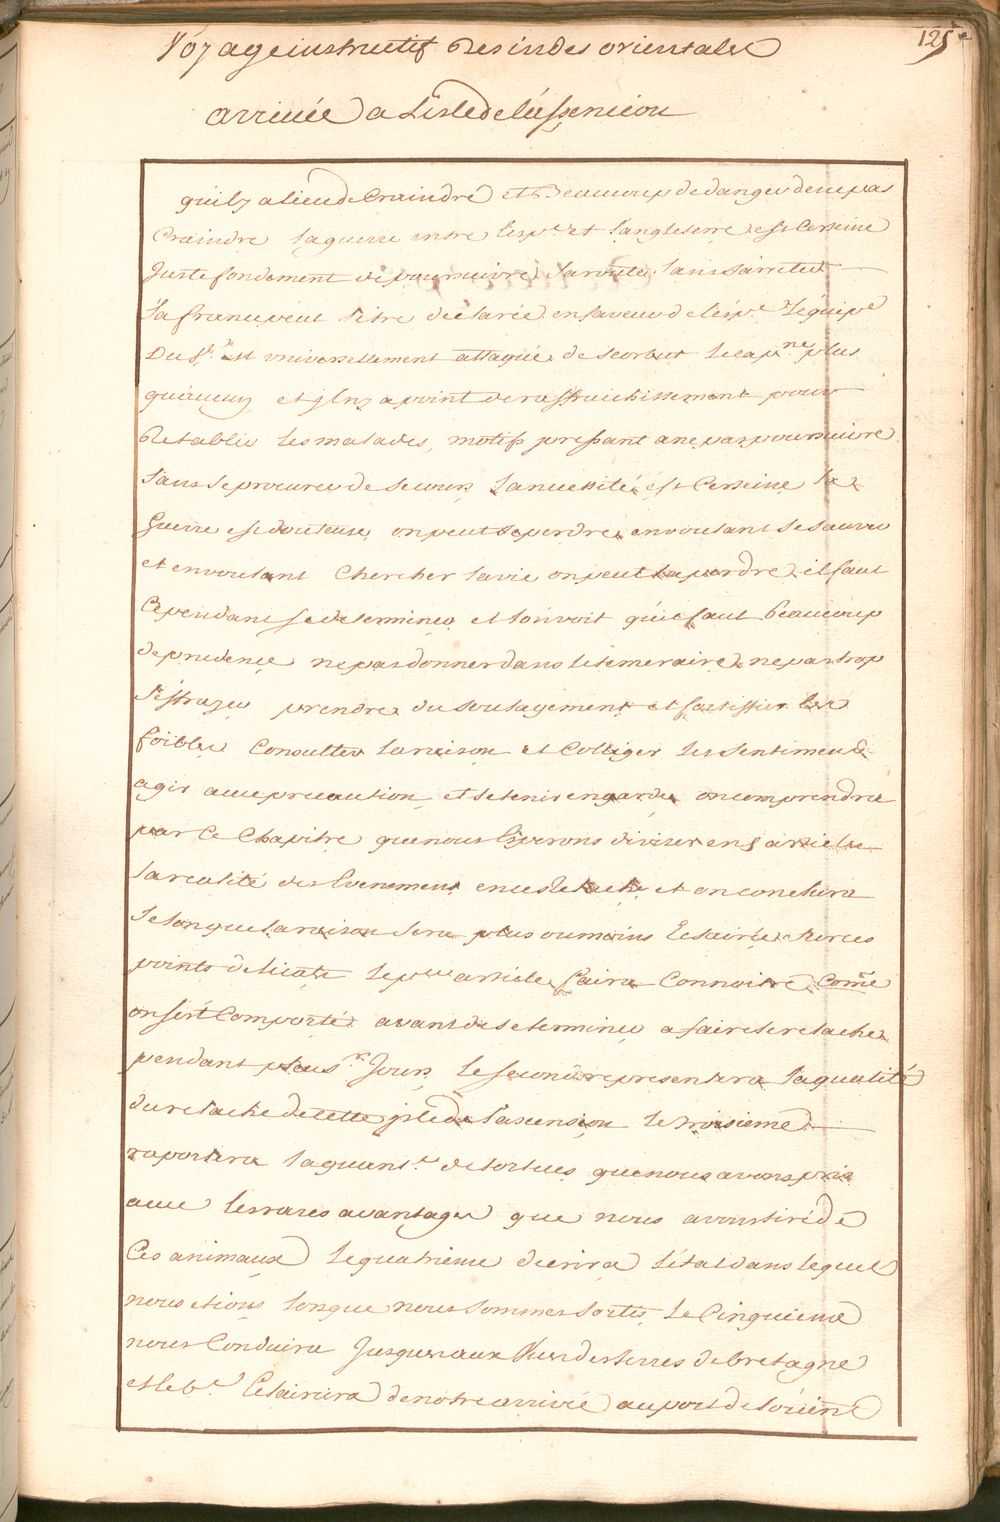 125
Voyage instructif Des indes orientales
arrivée a L'isle de L'assencion
quil y a lieu de Craindre et Beaucoup de danger de ne pas
Craindre la guerre entre L'espe. et L'angleterre est Certaine
Juste fondement de poursuivre la route sans s'arreter
La france peut s'être déclarée en faveur de l'espe. L'équipe
Du st. est universellement attaqué de scorbut le capne. plus
qu'aucun et jln'y a point de raffraichissement pour
Retablir les malades, motifs pressant a ne pas poursuivre
sans se procurer de secours la necessité est Certaine la
guerre est douteuse on peut se perdre en voulant se sauver
et en voulant Chercher la vie on peut la perdre il faut
Cependant se determiner et l'on voit qu'il faut beaucoup
de prudence ne pas donner dans le temeraire ne pas trop
s'effrayer prendre du soulagement et fortiffier les
foibles Consulter la raison et Colliger les sentimens
agir avec precaution et se tenir en garde on comprendra
par Ce Chapitre que nous Esperons diviser en 6 articles
la realité des Evenemens en ces Relache et on conclura
selon que la raison sera plus ou moins Eclairée sur ces
points delicats Le pere article faira Connoitre Come
on s'est Comporté avant de se terminer a faire le relache
pendant plusrs. Jours Le second representera la qualité
du relache de cette jsle de l'ascension Le troisieme
raportera la quante. de tortues que nous avons pris
avec les rares avantages que nous avons tiré de
Ces animaux Le quatrieme decrira l'état dans lequel
nous etions lorsque nous sommes sortis Le Cinquieme
nous Conduira Jusques aux Vues des terres de bretagne
et le 6e. Eclaircira de notre arrivée au port de l'orient